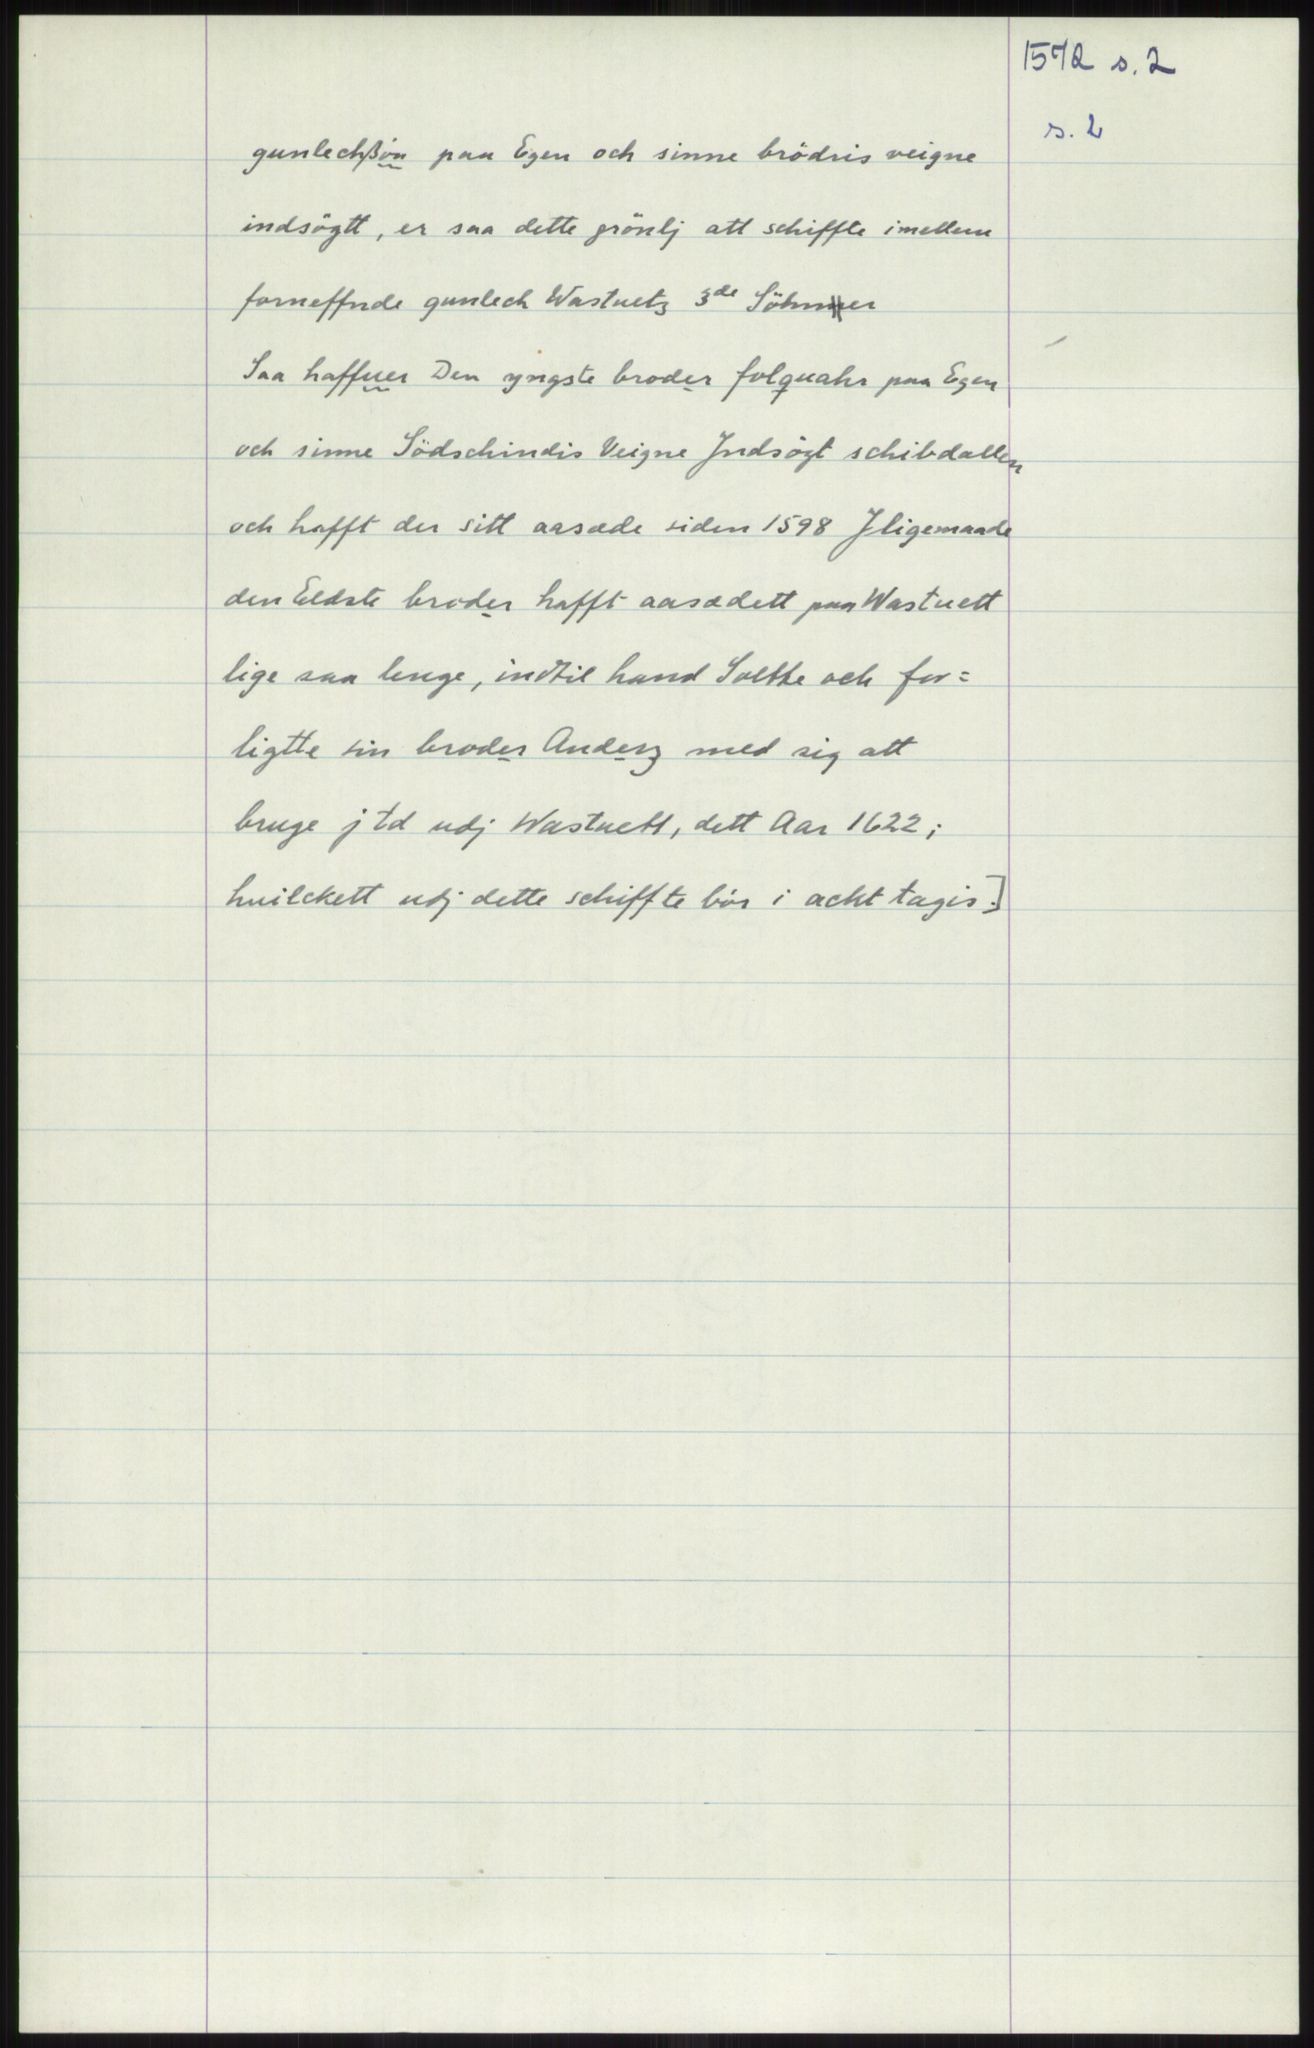 1572 s. 2
s. 2
gunlechßön paa Egen och sinne brödris veigne
indsögtt, er saa dette grönlj att schiffte imellem
forneffnde gunlech Wastuetz 3de Söhner
Saa haffuer Den yngste broder folquahr paa Egen
och sinne Södschindis Veigne Jndsögt schibdallen
och hafft der sitt aasæde siden 1598 Jligemaade
den Eldste broder hafft aasædett paa Wastuett
lige saa lenge, indtil hand Soelthe och for=
ligtte sin broder Anderz med sig att
bruge j td udj Wastuett, dett Aar 1622;
huilckett udj dette schiffte bör i acht tagis.]